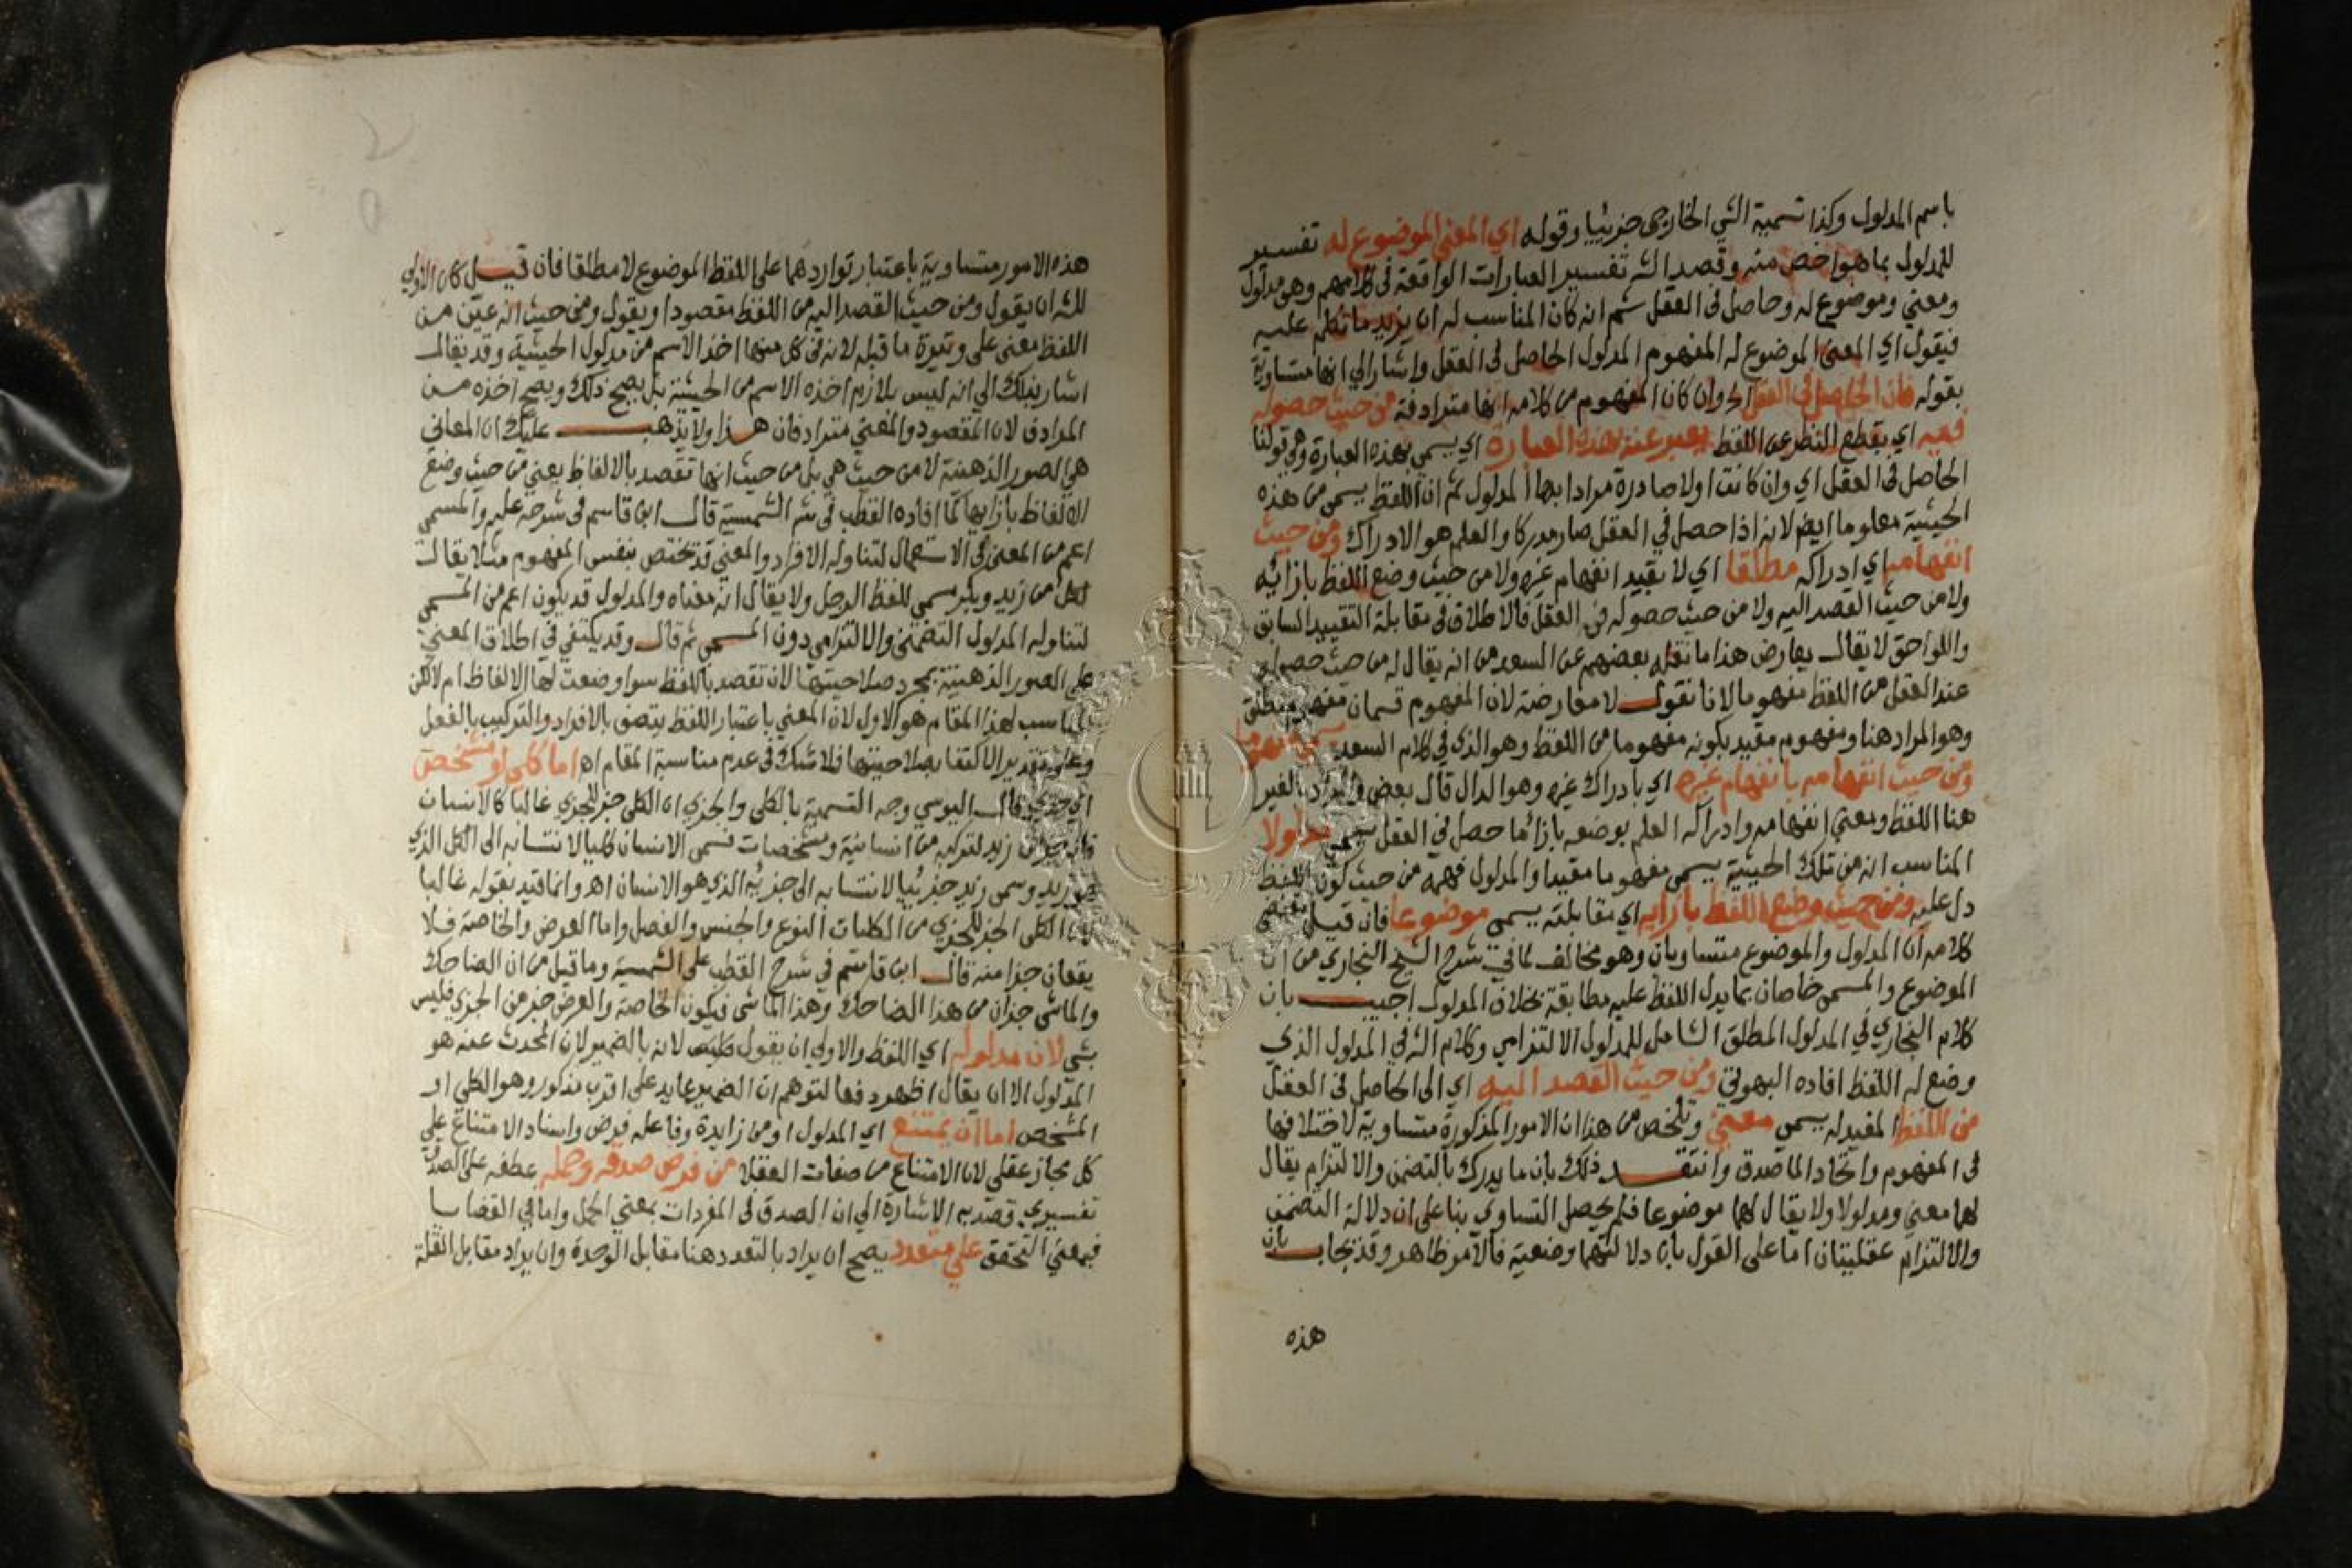 باسم المدلول وكذا تسمية الشي الخارجى جزئيا وقوله اي المعني الموضوع له تفسير
للمدلول بما هو اخص منه وقصد الشر تفسير العبارات الواقعة في كلامهم وهى مدلول
ومعني وموضوع له وحاصل فى العقل ثم انه كان المناسب له ان يزيد ما تكلم عليه
فيقول اي المعنى الموضوع له المفهوم المدلول الحاصل فى العقل واشار الي انها متساوية
بقوله فان الحاصل فى العقل الخ وان كان المفهوم من كلامه انها مترادفة من حيث حصوله
فيه اي بقطع النظر عن اللفظ يعبر عنه بهذه العبارة اي يسمى بهذه العبارة وهى قولنا
الحاصل فى العقل اي وان كانت اولا صادرة مرادا بها المدلول ثم ان اللفظ يسمى من هذه
الحيثية معلوما ايضا لانه اذا حصل في العقل صار مدركا والعلم هو الادراك ومن حيث
انفهامه اي ادراكه مطلقا اي لا بقيد انفهام غيره ولا من حيث وضع اللفظ بازائه
ولا من حيث القصد اليه ولا من حيث حصوله فى العقل فالاطلاق فى مقابلة التقييد السابق
واللواحق لا يقال يعارض هذا ما نقله بعضهم عن السعد من انه يقال له من حيث حصوله
عند العقل من اللفظ مفهوما لانا نقول لا معارضة لان المفهوم قسمان مفهوم مطلق
وهو المراد هنا ومفهوم مقيد بكونه مفهوما من اللفظ وهو الذي في كلام السعد يسمى مفهوما
ومن حيث انفهامه بانفهام غيره اي بادراك غيره وهو الدال قال بعض والمراد بالغير
هنا اللفظ ومعني انفهامه وادراكه العلم بوضعه بازاء ما حصل فى العقل يسمى مدلولا
المناسب انه من تلك الحيثية يسمى مفهوما مقيدا والمدلول فهمه من حيث كون اللفظ
دل عليه ومن حيث وضع اللفظ بازايه اي مقابلته يسمى موضوعا فان قيل مقتضى
كلامه ان المدلول والموضوع متساويان وهو مخالف لما في شرح الشيخ النجاري من ان
الموضوع والمسمى خاصان بما يدل اللفظ عليه مطابقة بخلاف المدلول اجيب بان
كلام النجاري في المدلول المطلق الشامل للمدلول الالتزامي وكلام الشر في المدلول الذي
وضع له اللفظ افاده البهوتي ومن حيث القصد اليه اي الى الحاصل فى العقل
من اللفظ المفيد له يسمى معني وتلخص من هذا ان الامور المذكورة متساوية لاختلافها
فى المفهوم واتحاد الماصدق وانتقد ذلك بان ما يدرك بالتضمن والالتزام يقال
لها معني ومدلولا ولا يقال لها موضوعا فلم يحصل التساوي بنا على ان دلالة التضمن
والالتزام عقليتان اما على القول بان دلالتهما وضعية فالامر ظاهر وقد يجاب بان
هذه
هذه الامور متساوية باعتبار تواردها على اللفظ الموضوع لا مطلقا فان قيل كان الاولي
للشر ان يقول ومن حيث القصد اليه من اللفظ مقصودا ويقول ومن حيث انه عين من
اللفظ معنى على وتيرة ما قبله لانه فى كل منهما اخذ الاسم من مدلول الحيثية وقد يقال
اشار بذلك الي انه ليس بلازم اخذه الاسم من الحيثية بل يصح ذلك ويصح اخذه من
المرادف لان المقصود والمعني مترادفان هذا ولا يذهب عليك ان المعانى
هي الصور الذهنية لا من حيث هي بل من حيث انها تقصد بالالفاظ يعني من حيث وضع
الالفاظ بازايها كما افاده القطب فى شر الشمسية قال ابن قاسم فى شرحه عليه والمسمي
اعم من المعنى في الاستعمال لتناوله الافراد والمعني قد يختص بنفس المفهوم مثلا يقال
لكل من زيد وبكر مسمى للفظ الرجل ولا يقال انه معناه والمدلول قد يكون اعم من المسمى
لتناوله المدلول التضمني والالتزامي دون المسمى ثم قال وقد يكتفى فى اطلاق المعني
على الصور الذهنية بمجرد صلاحيتها لان تقصد باللفظ سوا وضعت لها الالفاظ ام لا لكن
المناسب لهذا المقام هو الاول لان المعني باعتبار اللفظ يتصف بالافراد والتركيب بالفعل
وعلى تقدير الاكتفا بصلاحيتها فلا شك فى عدم مناسبة المقام اه اما كلي او مشخص
اي جزي قال اليوسي وجه التسمية بالكلى والجزي ان الكلى جز للجزي غالبا كالانسان
فانه جز من زيد لتركبه من انسانية ومشخصات فسمى الانسان كليا لانتسابه الى الكل الذي
هو زيد وسمى زيد جزئيا لانتسابه الى جزئه الذي هو الانسان اه وانما قيد بقوله غالبا
لان الكلى الجز للجزي من الكليات النوع والجنس والفصل واما العرض والخاصة فلا
يقعان جزا منه قال ابن قاسم في شرح القطب على الشمسية وما قيل من ان الضاحك
والماشى جزان من هذا الضاحك وهذا الماشى فيكون الخاصة والعرض جز من الجزي فليس
بشي لان مدلوله اي اللفظ والاولي ان يقول لانه بالضمير لان المحدث عنه هو
المدلول الا ان يقال اظهر دفعا لتوهم ان الضمير عايد على اقرب مذكور وهو الكلي او
المشخص اما ان يمتنع اي المدلول او من زايدة وفاعله فرض واسناد الامتناع علي
كل مجاز عقلى لان الامتناع من صفات العقلا من فرض صدقه وحمله عطفه على الصدق
تفسيري قصد به الاشارة الي ان الصدق فى المفردات بمعني الحمل واما في القضايا
فبمعني التحقق علي متعدد يصح ان يراد بالتعدد هنا مقابل الوحدة وان يراد مقابل القلة